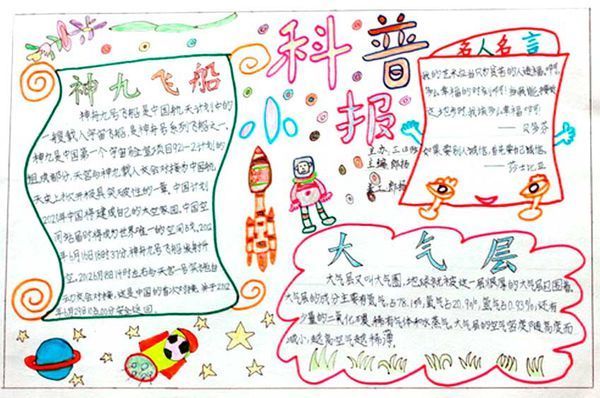 科普
小报
神九飞船
神舟九号飞船是中国航天计划中的
一艘载人宇宙飞船,是神舟号系列飞船之一。
神九是中国第一个宇宙实验室项目921-2计划的
组成部分,天宫与神九载人交会对接为中国航
天史上掀开极具突破性的一章。中国计划
2020年中国将建成自己的太空家园,中国空
间站届时将成为世界唯一的空间站。
2012年6月16日18时37分,神舟九号飞船发射升
空。2012年6月18日14时左右与天宫一号实施自
动交会对接,这是中国的首次对接,并于2012
年6月29日10点00分安全返回。
名人名言
——贝多芬
——莎士比亚
大气层
大气层又叫大气圈,地球就被这一层很厚的大气层包围着。
大气层的成分主要有氮气,占78.1%;氧气占20.9%;氩气占0.93%;还有
少量的二氧化碳、稀有气体和水蒸气。大气层的空气密度随高度而
减小,越高空气越稀薄。